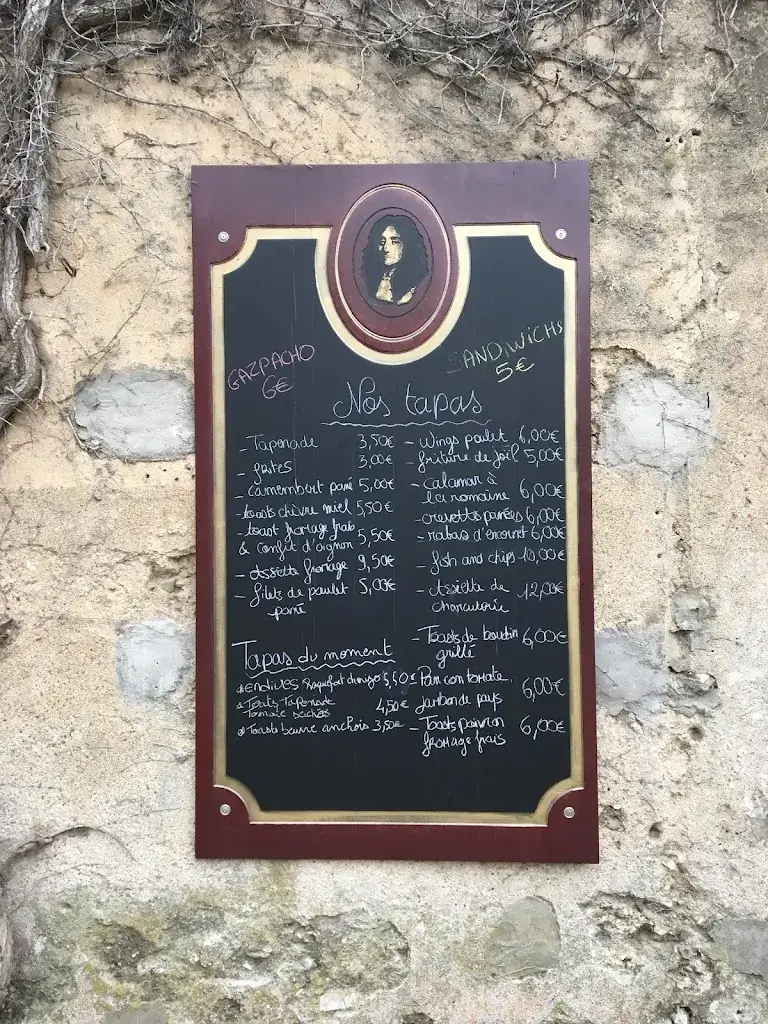 GAZPACHO
6€
SANDWICHS
5€
Nos tapas
- Tapenade 3,50€
- frites 3,00€
- camembert pané 5,00€
- toasts chèvre miel 5,50€
- toast fromage frais
& confit d'oignon 5,50€
- Assiette fromage 9,50€
- filets de poulet 5,00€
pané
Tapas du moment
Endives Roquefort 5,50€
Toasts Tapenade
Tomate séchées 4,50€
Toasts beurre anchois 3,50€
- Wings poulet 6,00€
- friture de joil 5,00€
- calamar à
la romaine 6,00€
- crevettes panées 6,00€
- rabas d'encornet 6,00€
- fish and chips 10,00€
- Assiette de
charcuterie 12,00€
- Toasts de boudin
grillé 6,00€
- Pan con tomate,
jambon de pays 6,00€
- Toasts poivron
fromage frais 6,00€